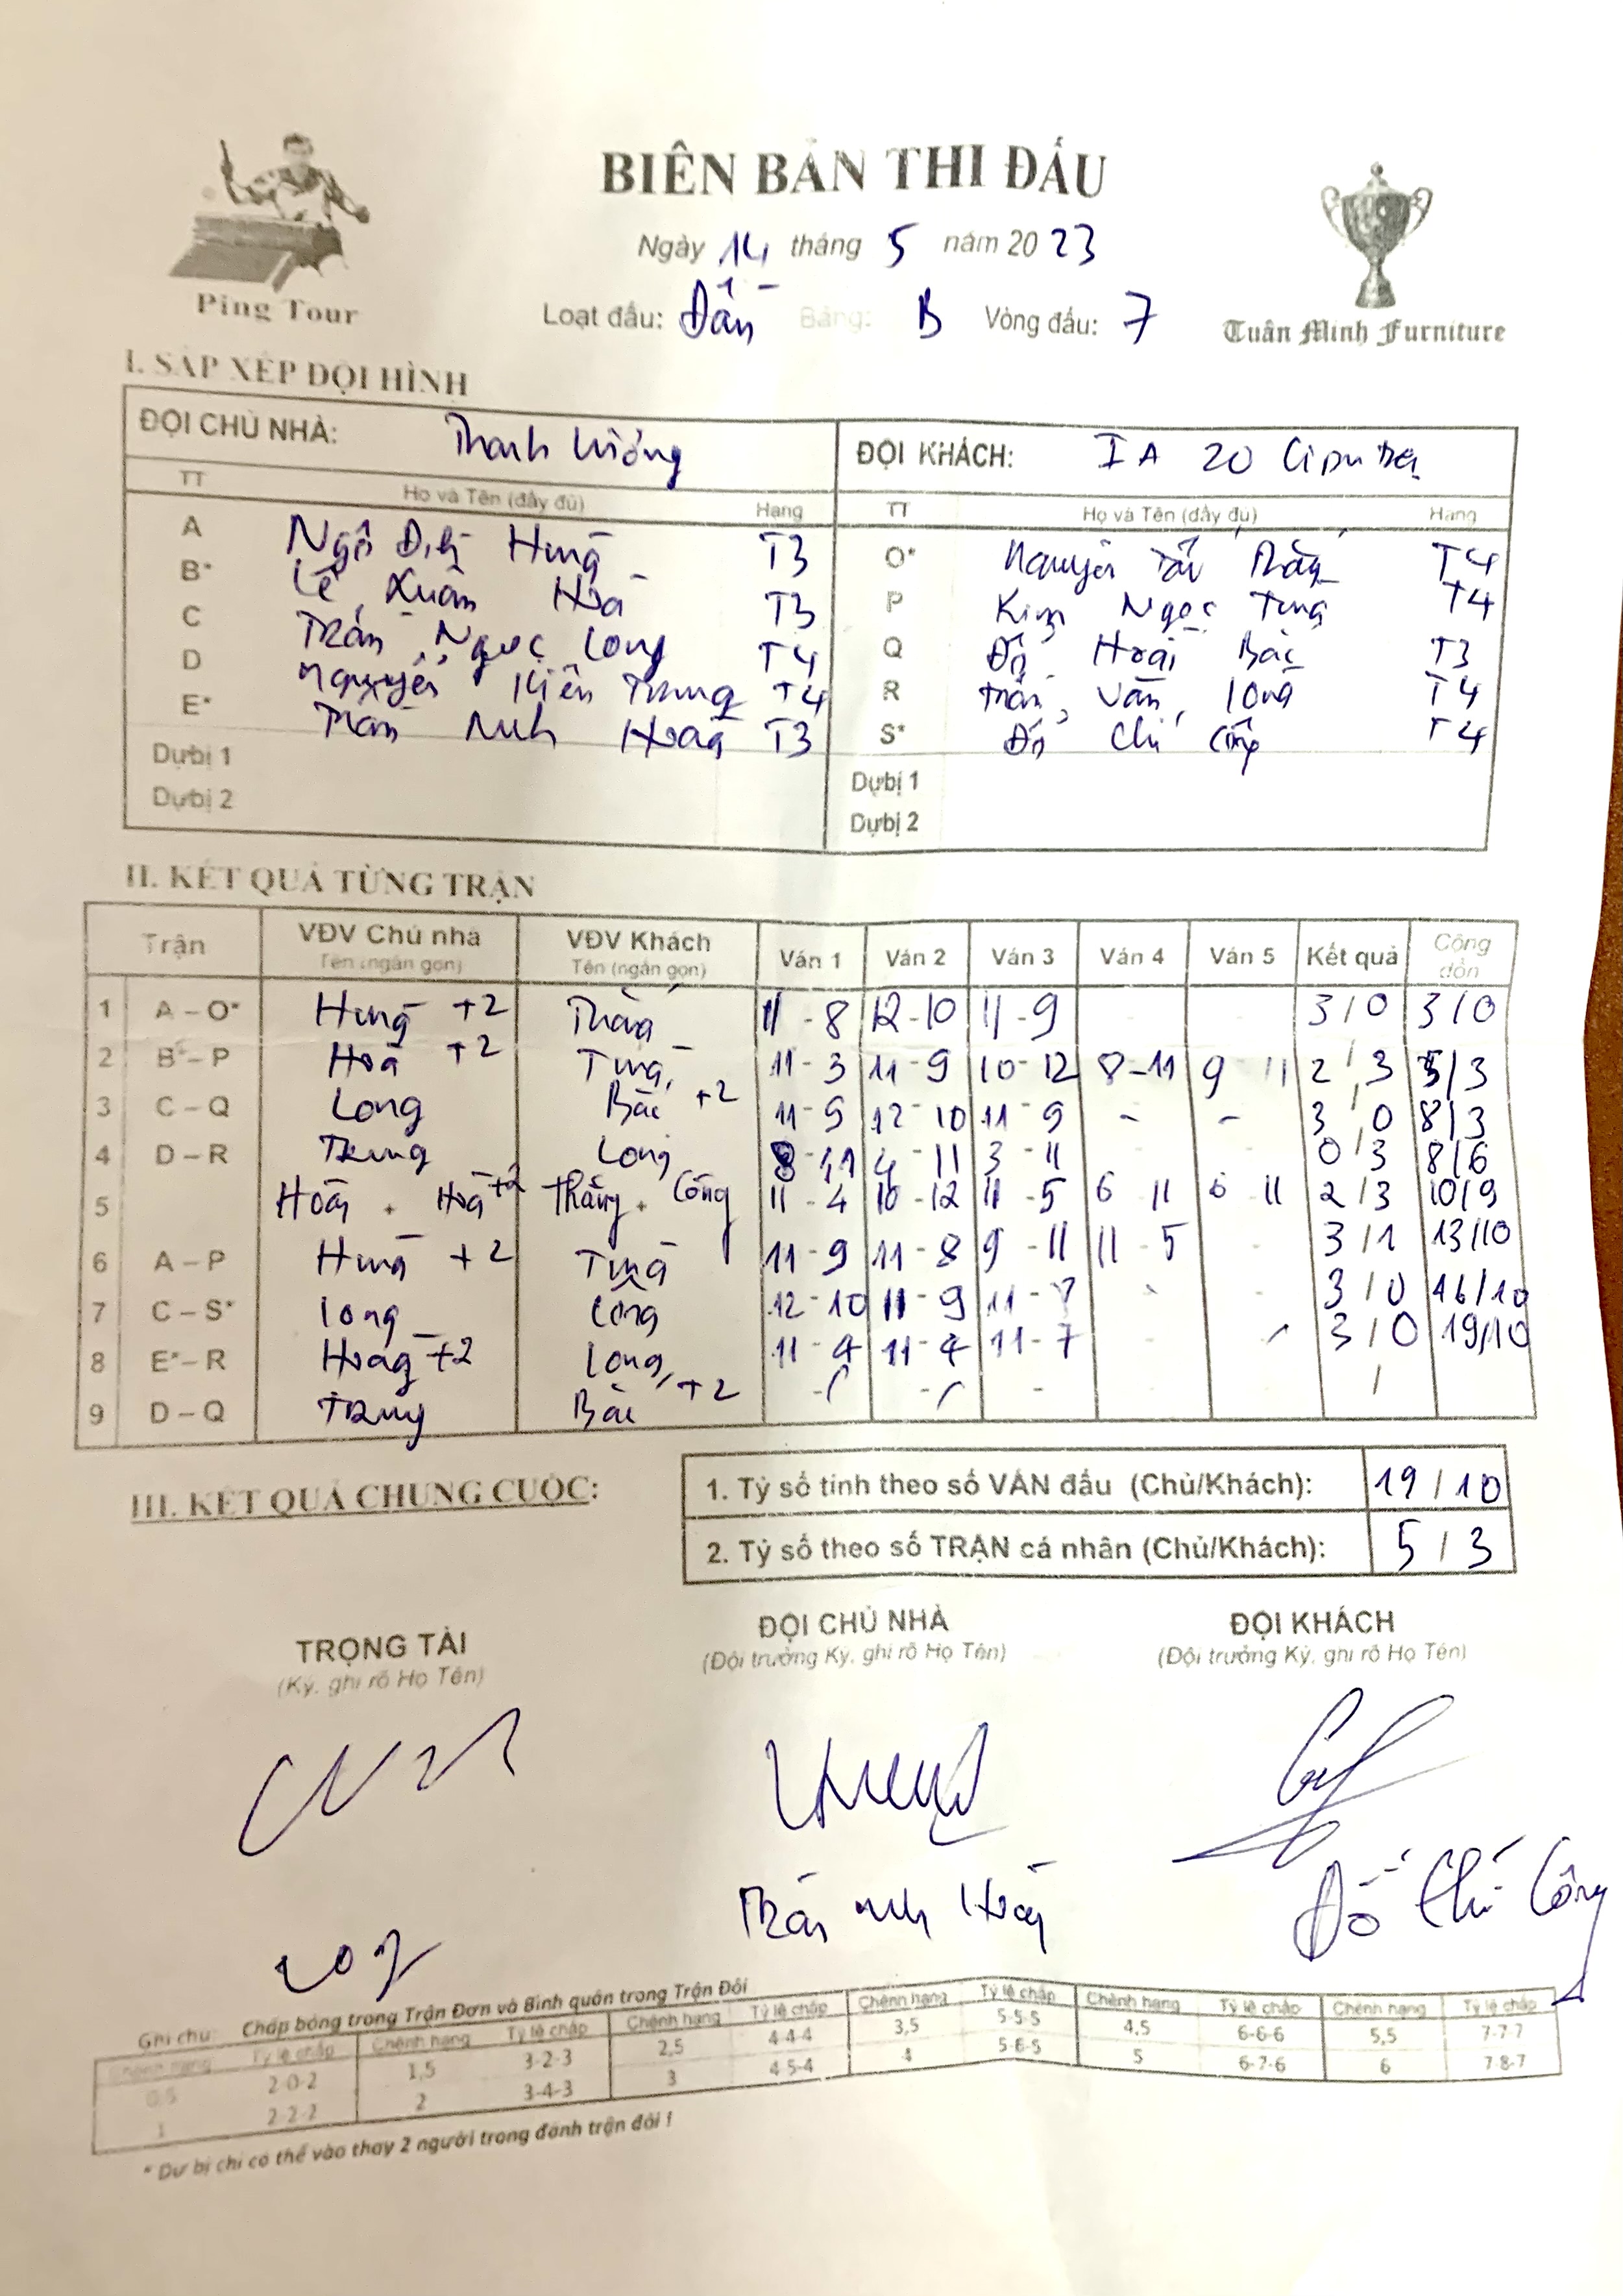 BIÊN BẢN THI ĐẤU
Ngày 14 tháng 5 năm 2023
Ping Tour
Loạt đấu: Bảng: B Vòng đấu: 7
Tuân Minh Furniture
I. SẮP XẾP ĐỘI HÌNH
ĐỘI CHỦ NHÀ: Thanh Tường
ĐỘI KHÁCH: IA 20 Ciputra
TT Họ và Tên (đầy đủ) Hạng TT Họ và Tên (đầy đủ) Hạng
A Ngô Hưng T3 O* Nguyễn Thắng T4
B* Lê Xuân Hoà T3 P Kim Ngọc Tùng T4
C Trần Ngọc Long T4 Q Đỗ Hoài Bắc T3
D Nguyễn Kiên Trung T4 R Trần Văn Long T4
E* Trần Anh Hoàng T3 S* Đỗ Chí Công T4
Dự bị 1 Dự bị 1
Dự bị 2 Dự bị 2
II. KẾT QUẢ TỪNG TRẬN
Trận VĐV Chủ nhà VĐV Khách Ván 1 Ván 2 Ván 3 Ván 4 Ván 5 Kết quả Cộng dồn
Tên (ngắn gọn) Tên (ngắn gọn)
1 A – O* Hưng +2 Thắng 11 - 8 12 - 10 11 - 9 - - 3 / 0 3 / 0
2 B* – P Hoà +2 Tùng 11 - 3 11 - 9 10 - 12 8 - 11 9 11 2 / 3 5 / 3
3 C – Q Long Bắc +2 11 - 9 12 - 10 11 - 9 - - 3 / 0 8 / 3
4 D – R Trung Long 8 - 11 4 - 11 3 - 11 0 / 3 8 / 6
5 Hoàng + Hoà +2 Thắng + Công 11 - 4 10 - 12 11 - 5 6 11 6 11 2 / 3 10 / 9
6 A – P Hưng +2 Tùng 11 - 9 11 - 8 9 - 11 11 - 5 - 3 / 1 13 / 10
7 C – S* Long Công 12 - 10 11 - 9 11 - 7 - - 3 / 0 16 / 10
8 E* – R Hoàng +2 Long 11 - 4 11 - 4 11 - 7 - - 3 / 0 19 / 10
9 D – Q Trung Bắc +2 - - - - - /
III. KẾT QUẢ CHUNG CUỘC:
1. Tỷ số tính theo số VÁN đấu (Chủ/Khách): 19 / 10
2. Tỷ số theo số TRẬN cá nhân (Chủ/Khách): 5 / 3
TRỌNG TÀI ĐỘI CHỦ NHÀ ĐỘI KHÁCH
(Ký, ghi rõ Họ Tên) (Đội trưởng Ký, ghi rõ Họ Tên) (Đội trưởng Ký, ghi rõ Họ Tên)
Trần Anh Hoàng Đỗ Chí Công
Ghi chú: Chấp bóng trong Trận Đơn và Bình quân trong Trận Đôi
Chênh hạng Tỷ lệ chấp Chênh hạng Tỷ lệ chấp Chênh hạng Tỷ lệ chấp Chênh hạng Tỷ lệ chấp Chênh hạng Tỷ lệ chấp Chênh hạng Tỷ lệ chấp
0,5 2-0-2 1,5 3-2-3 2,5 4-4-4 3,5 5-5-5 4,5 6-6-6 5,5 7-7-7
1 2-2-2 2 3-4-3 3 4-5-4 4 5-6-5 5 6-7-6 6 7-8-7
* Dự bị chỉ có thể vào thay 2 người trong đánh trận đôi !